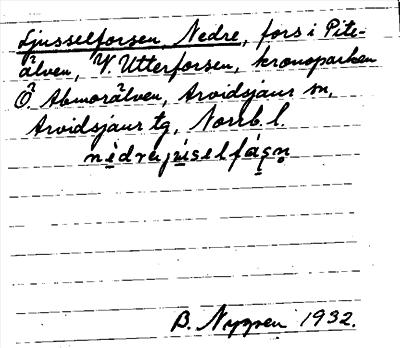 Ljusselforsen, Nedre, fors i Pite-
älven, V. Utterforsen, kronoparken
Ö. Abmorälven, Arvidsjaur sn,
Arvidsjaur tg, Norrb. l.
B. Nygren 1932.